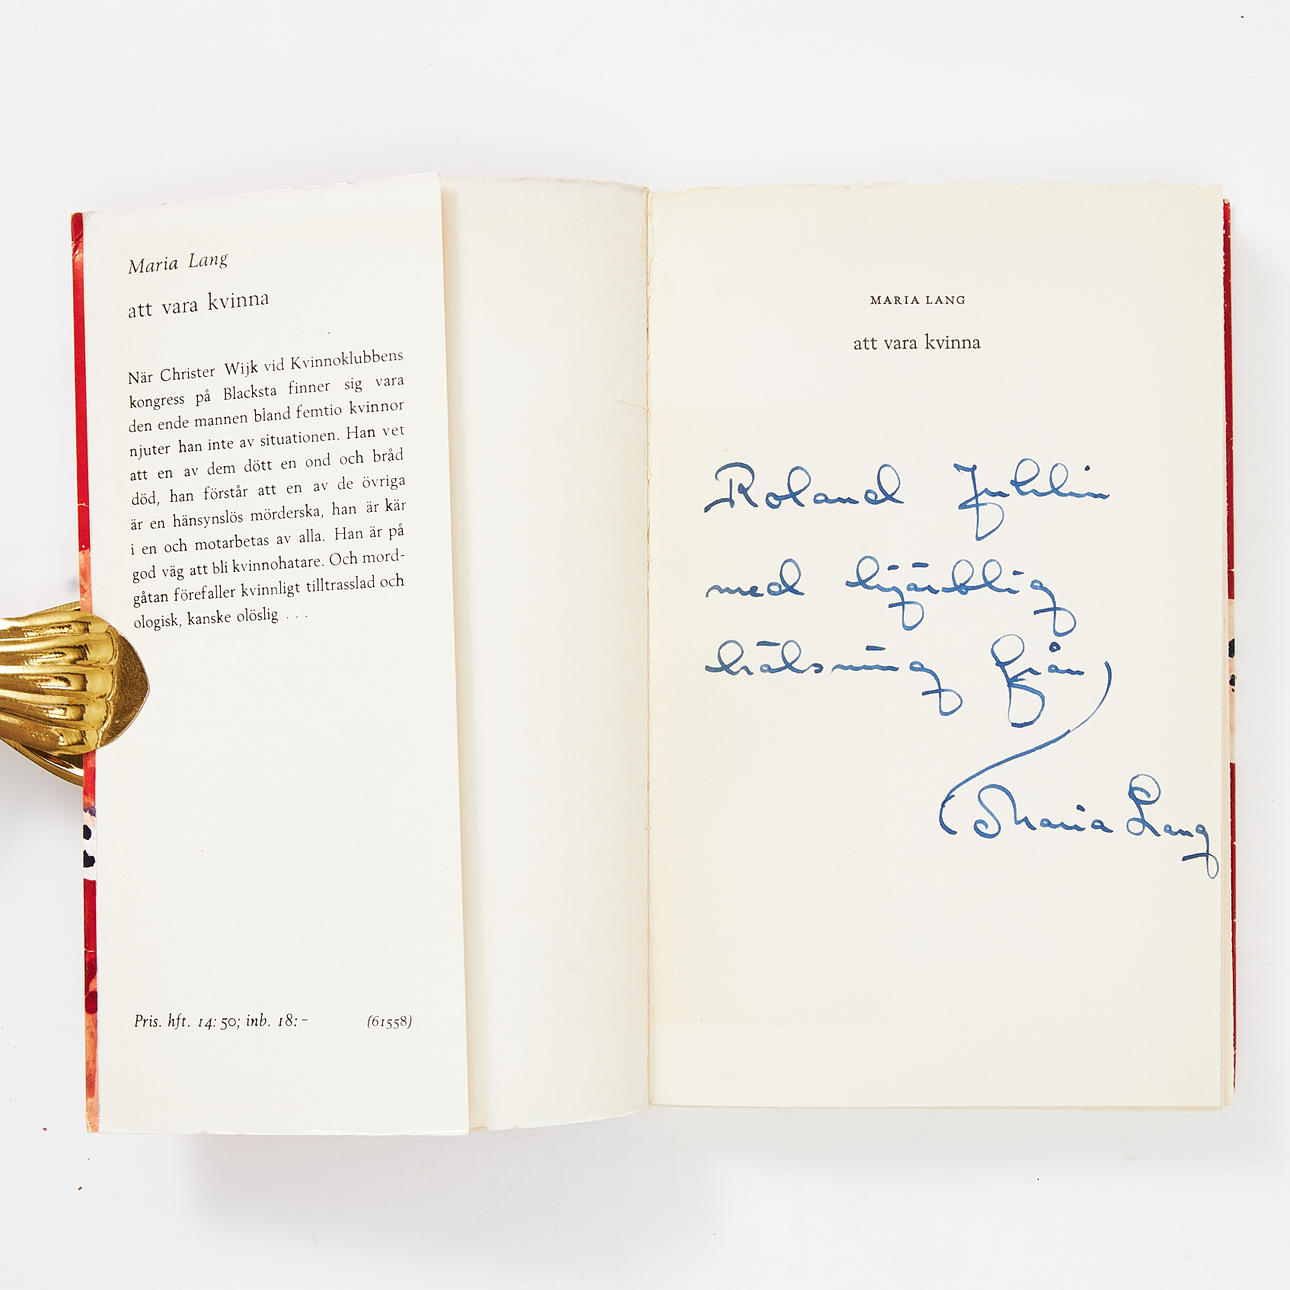 Maria Lang
att vara kvinna
När Christer Wijk vid Kvinnoklubbens
kongress på Blacksta finner sig vara
den ende mannen bland femtio kvinnor
njuter han inte av situationen. Han vet
att en av dem dött en ond och bråd
död, han förstår att en av de övriga
är en hänsynslös mörderska, han är kär
i en och motarbetas av alla. Han är på
god väg att bli kvinnohatare. Och mord-
gåtan förefaller kvinnligt tilltrasslad och
ologisk, kanske olöslig . . .
Pris. hft. 14: 50; inb. 18: – (61558)
MARIA LANG
att vara kvinna
Roland Juhlin
med hjärtlig
hälsning från
Maria Lang